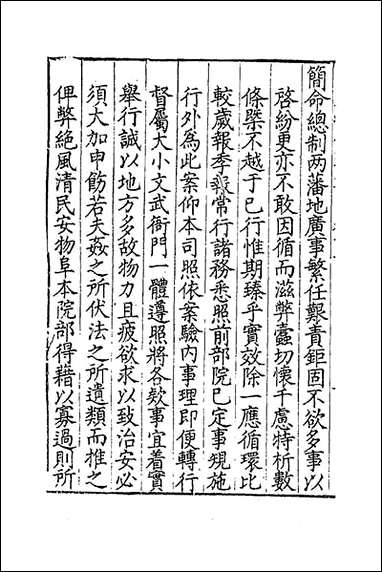 簡命總制两藩地廣事繁任艱責鉅固不欲多事以
啓紛更亦不敢因循而滋弊蠹切懷千慮特析數
條槩不越于已行惟期臻乎實效除一應循環比
較歲報季報常行諸務悉照前部院已定事規施
行外為此案仰本司照依案驗内事理即便轉行
督屬大小文武衙門一體遵照將各欵事宜着實
舉行誠以地方多故物力且疲欲求以致治安必
須大加申飭若夫姦之所伏法之所遺類而推之
俾弊絶風清民安物阜本院部得藉以寡過則所